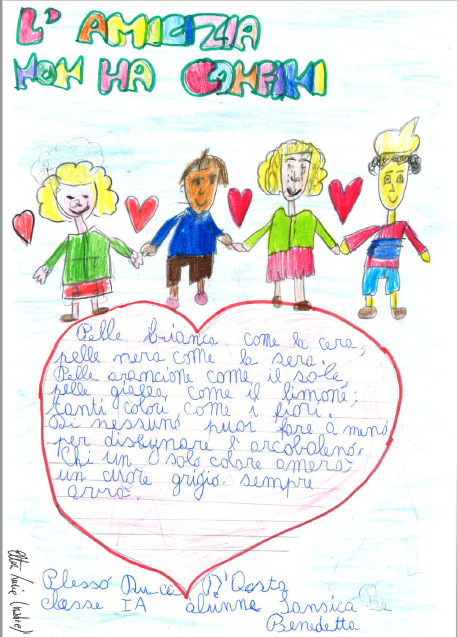 L' AMICIZIA
NON HA CONFINI
Pelle bianca come la cera,
pelle nera come la sera.
Pelle arancione come il sole,
pelle gialla come il limone;
tanti colori come i fiori.
Di nessuno puoi fare a meno
per disegnare l'arcobaleno.
Chi un solo colore amerà
un cuore grigio sempre
avrà.
Plesso Duca D'Aosta
classe IA alunna Sansica
Benedetta